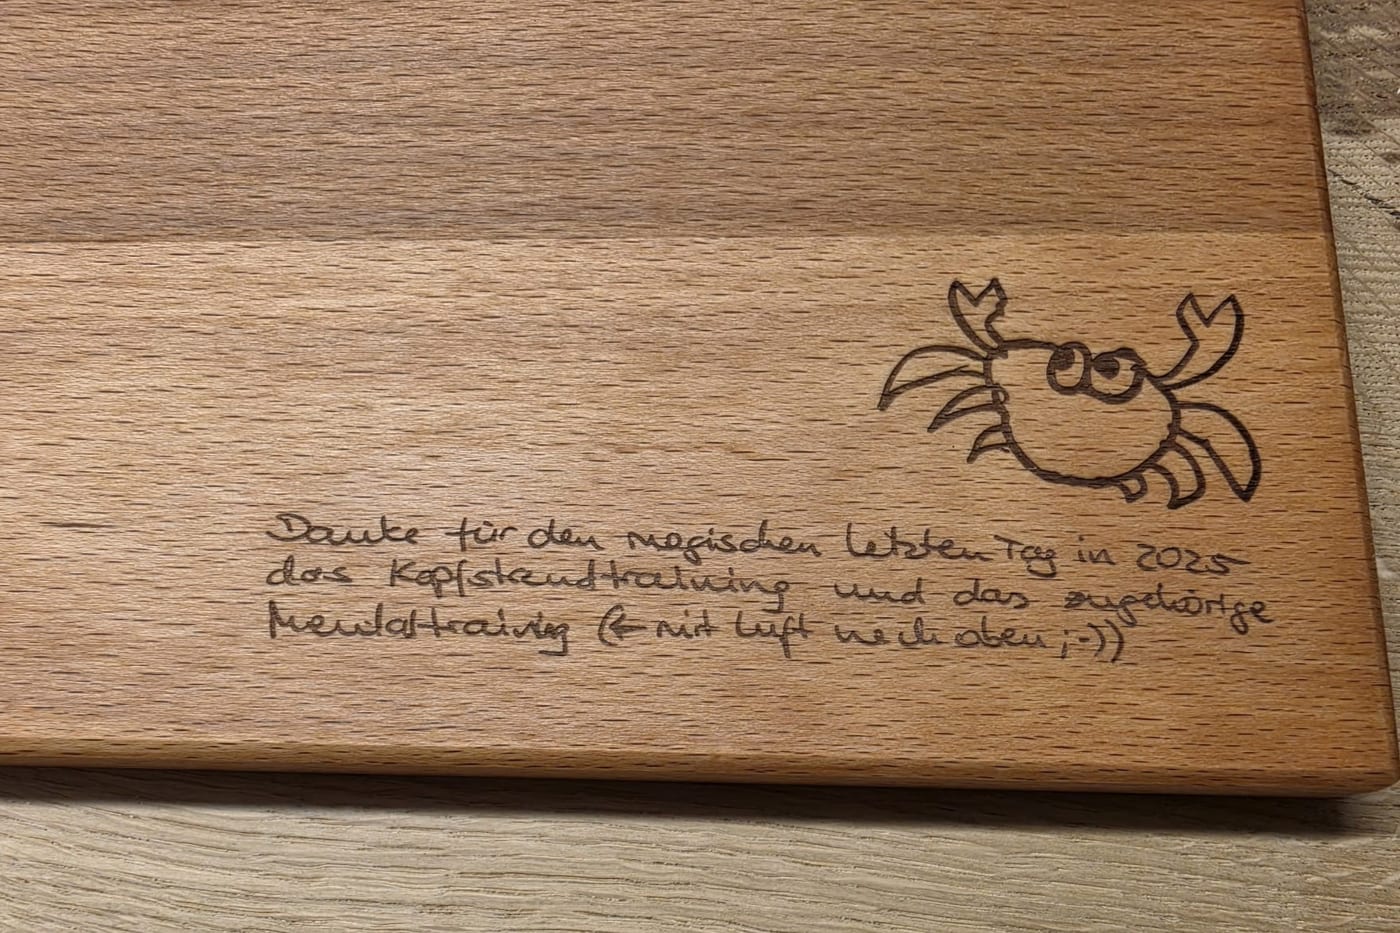 Danke für den magischen letzten Tag in 2025
das Kopfstandtraining und das zugehörige
Mentaltraining (← mit Luft nach oben ;-))